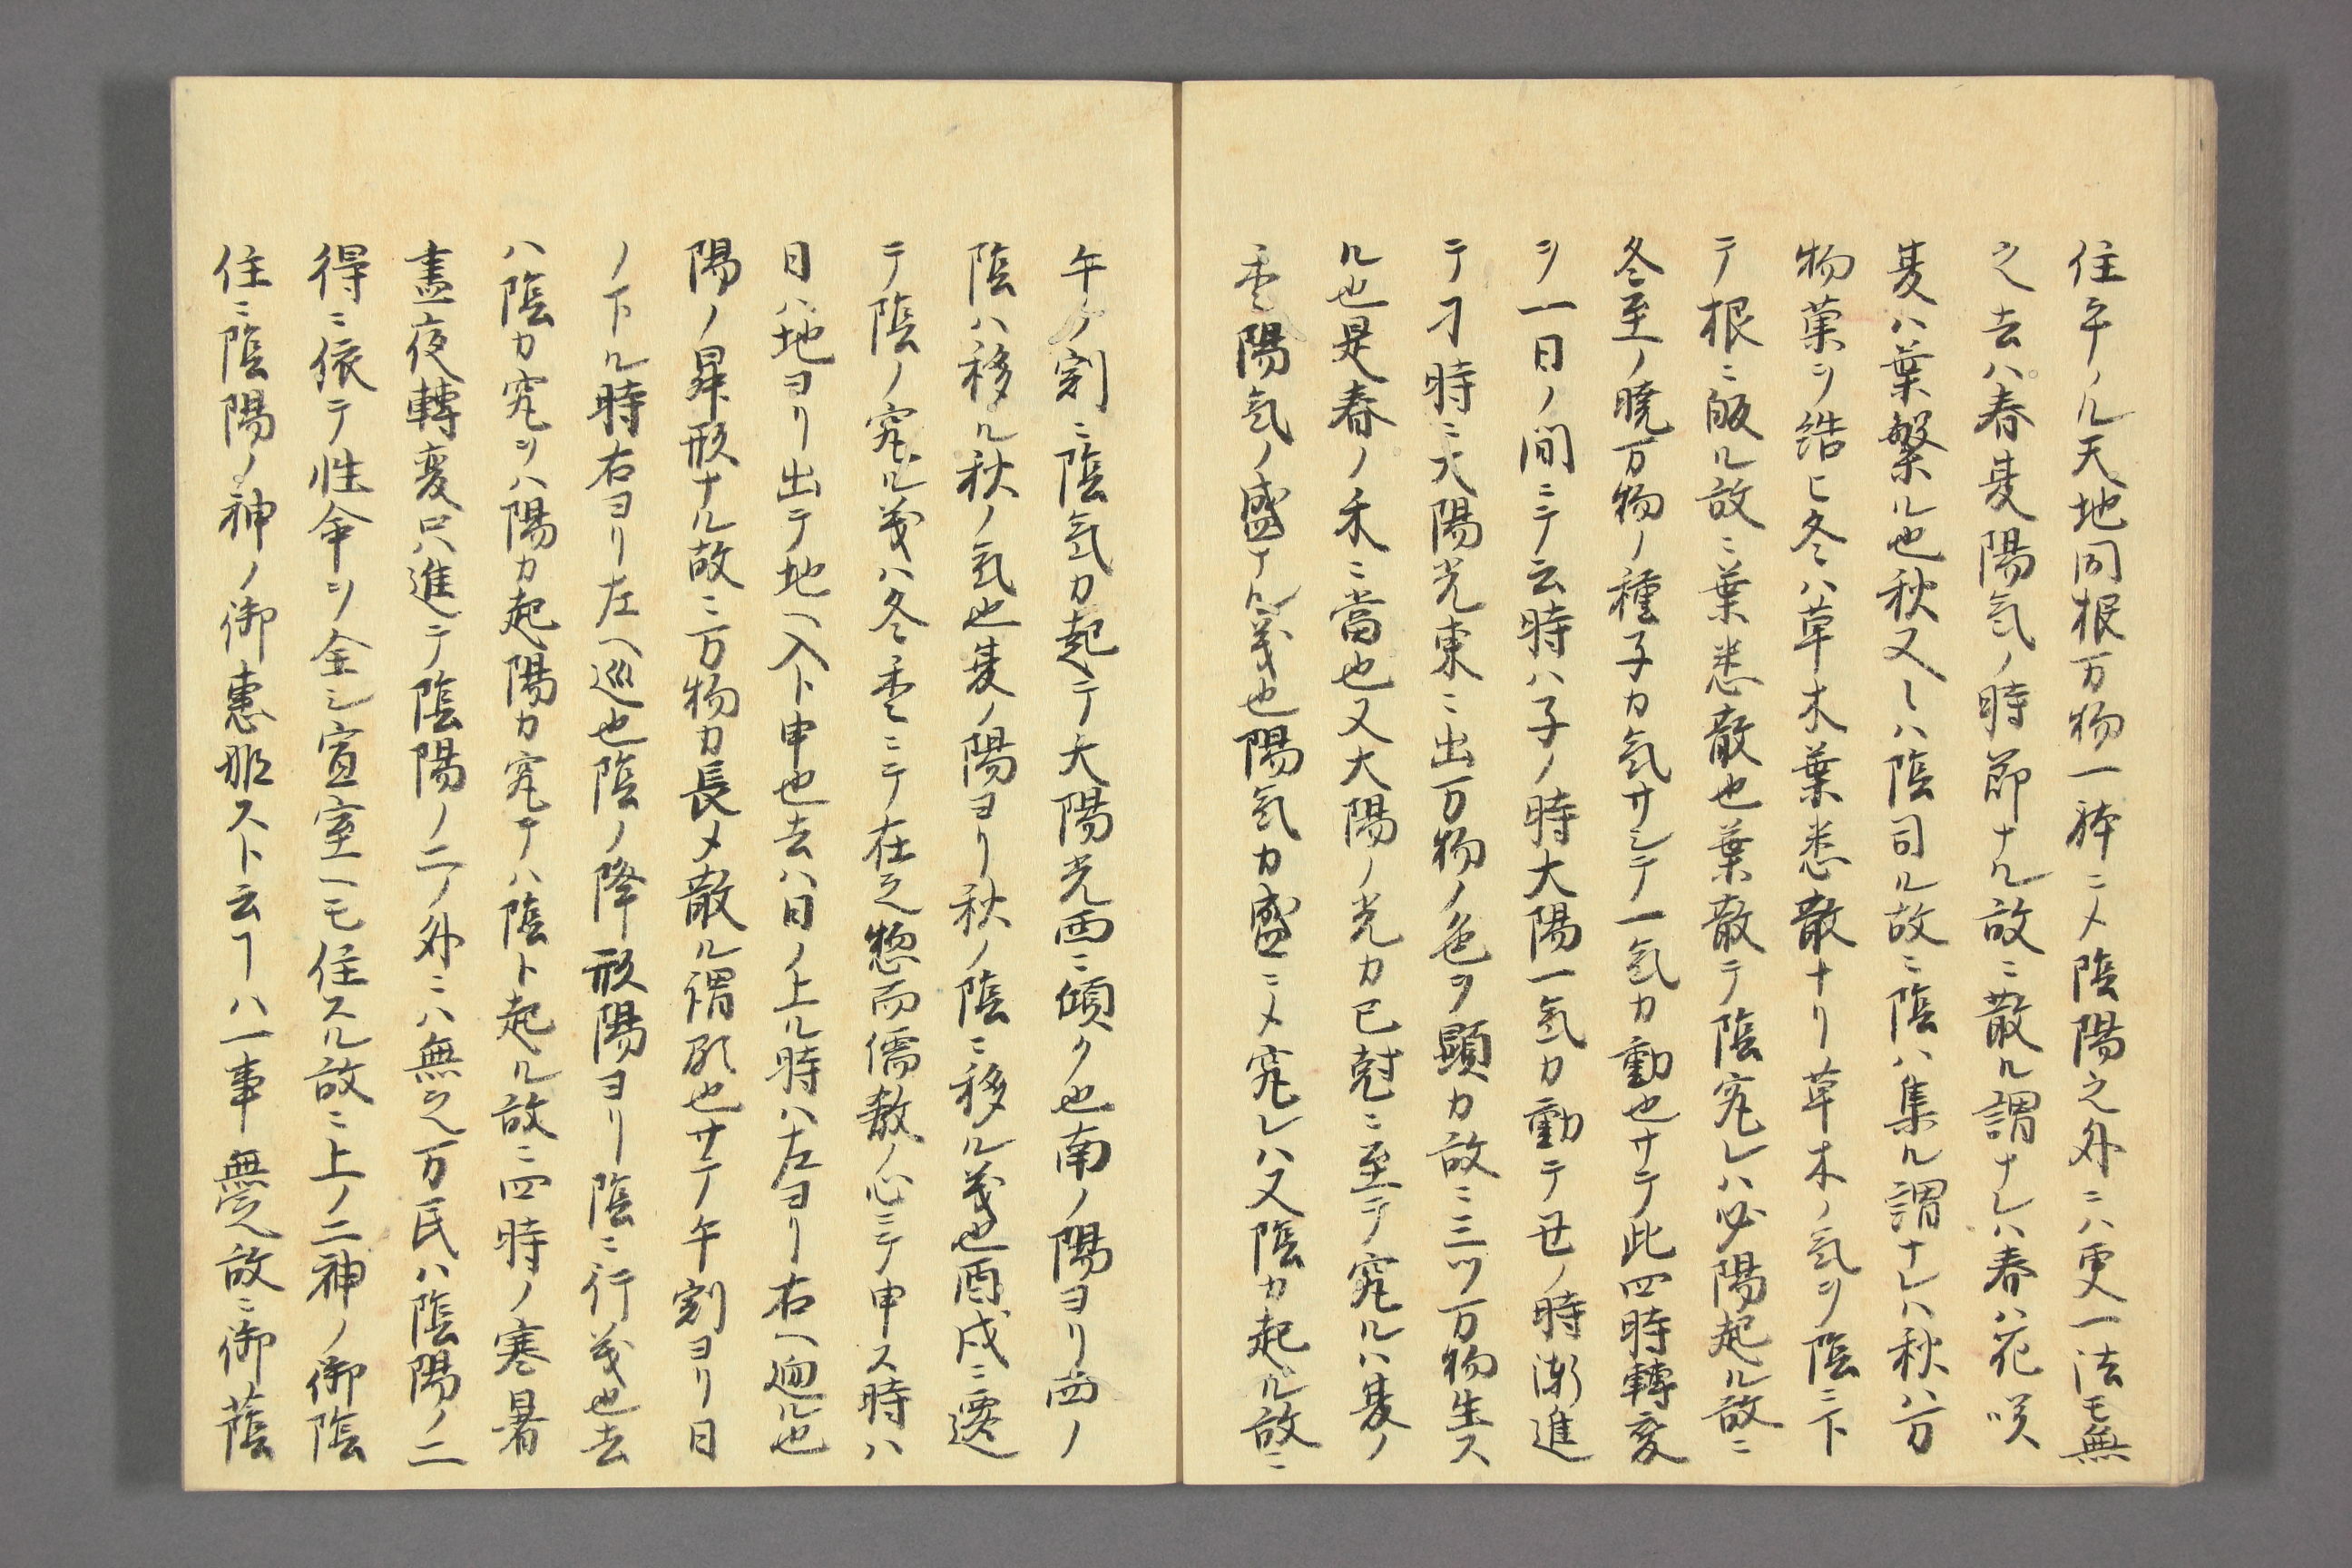 住午ノル天地同根万物一躰ニメ陰陽之外ニハ更一法モ無
之去ハ春夏陽気ノ時節ナル故ニ散ル謂ナレハ春ハ花咲
夏ハ葉繁ル也秋又レハ陰司ル故ニ陰ハ集ル謂ナレハ秋ハ万
物菓ヲ結ヒ冬ハ草木葉悉散ナリ草木ノ気ヲ陰ニ下
テ根ニ皈ル故ニ葉悉散也葉散テ陰究レハ必陽起ル故ニ
冬至ノ暁万物ノ種子カ気サシテ一気カ動也サテ此四時轉変
ヲ一日ノ間ニテ云時ハ子ノ時大陽一気カ動テ丑ノ時漸進
テ刁時ニ大陽光東ニ出万物ノ色ヲ顕カ故ニ三ツ万物生ス
ル也是春ノ禾ニ當也又大陽ノ光カ巳尅ニ至テ究ルハ夏ノ
季陽気ノ盛ナル義也陽気カ盛ニメ究レハ又陰カ起ル故ニ
午ノ剋ニ陰気カ起テ大陽光西ニ傾ク也南ノ陽ヨリ西ノ
陰ハ移ル秋ノ気也夏ノ陽ヨリ秋ノ陰ニ移ル義也酉戌ニ遷
テ陰ノ究ル義ハ冬季ニテ在之惣而儒教ノ心ニテ申ス時ハ
日ハ地ヨリ出テ地ヘ入ト申也去ハ日ノ上ル時ハ左ヨリ右ヘ廻ル也
陽ノ昇形ナル故ニ万物カ長メ散ル謂歟也サテ午剋ヨリ日
ノ下ル時右ヨリ左ヘ巡也陰ノ降形陽ヨリ陰ニ行義也去
ハ陰カ究ヲハ陽カ起陽カ究テハ陰ト起ル故ニ四時ノ寒暑
晝夜轉変只進テ陰陽ノ二ノ外ニハ無之万民ハ陰陽ノ二
得ニ依テ性命ヲ全シ宣室一モ住スル故ニ上ノ二神ノ御陰
住ニ陰陽ノ神ノ御恵咘スト云ヿハ一事無之故ニ御蔭